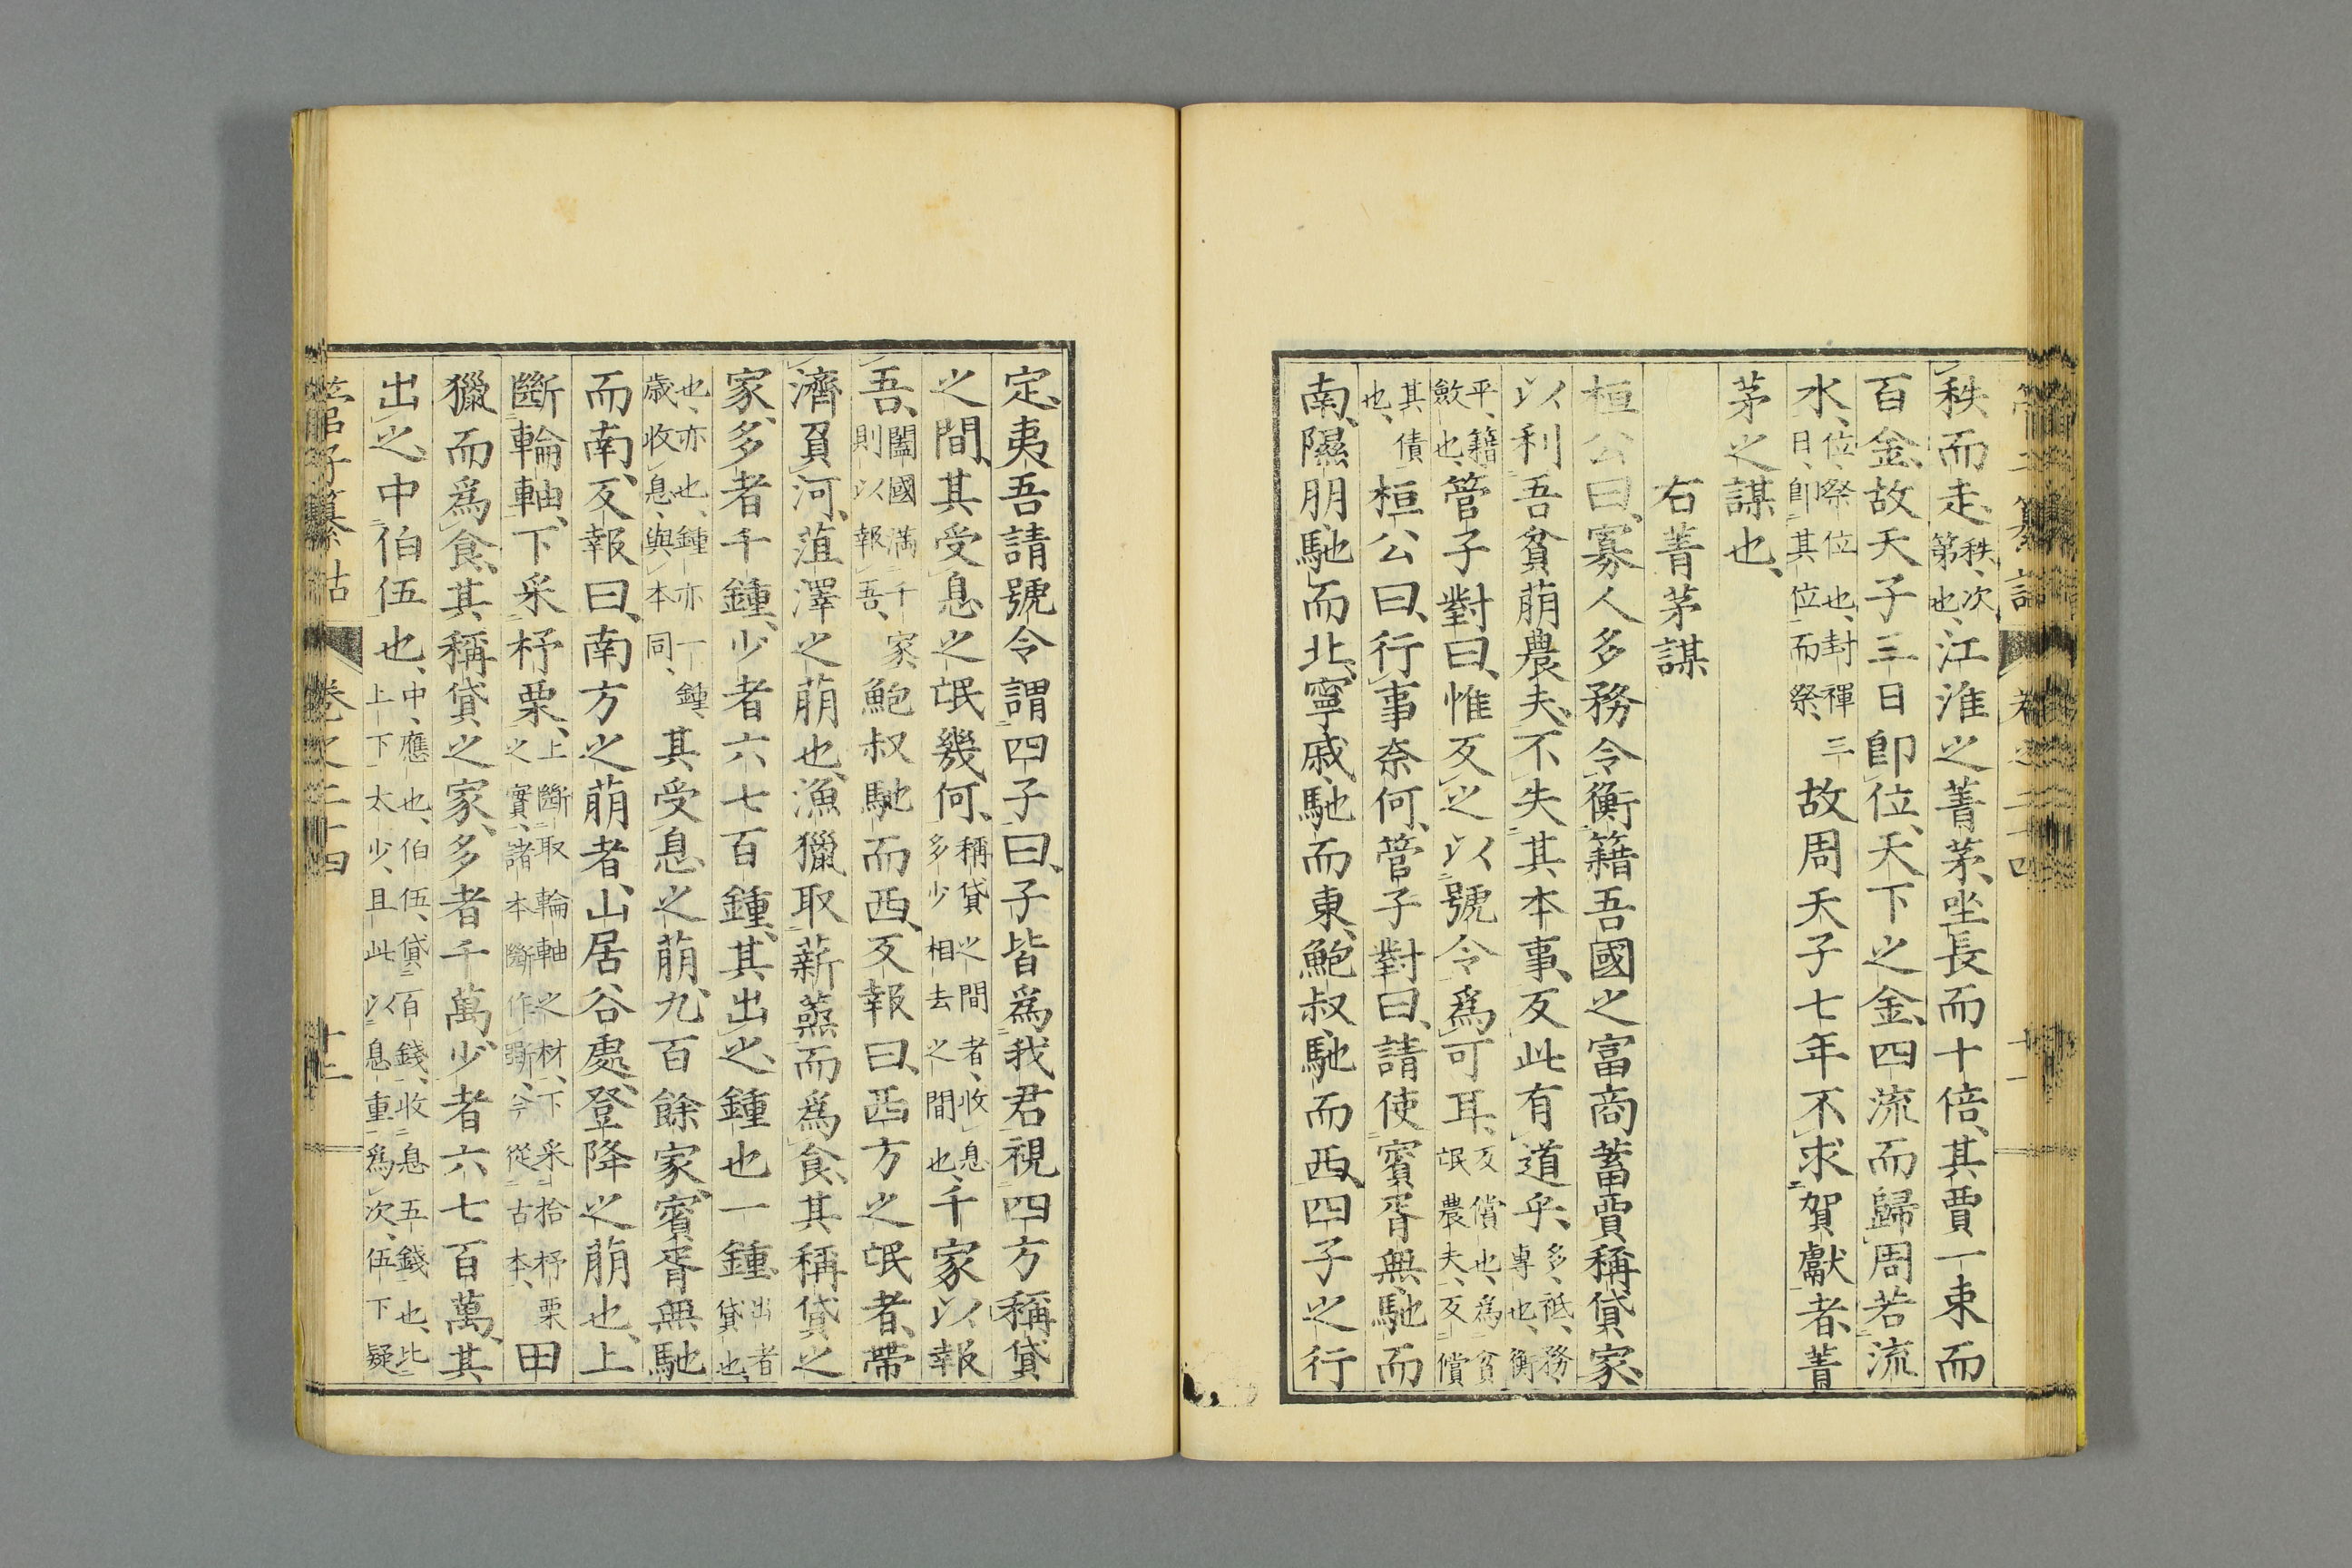 管子纂詁　卷之二十四　十一
秩而走、秩、次第也、江淮之菁茅、坐長而十倍、其賈一束而
百金、故天子三日卽位、天下之金、四流而歸周若流
水、位、祭位也、封禪三日、卽其位而祭、故周天子七年不求賀獻者、菁
茅之謀也、
右菁茅謀
桓公曰、寡人多務令衡籍吾國之富商蓄賈稱貸家、
以利吾貧萠農夫、不失其本事、反此有道乎、多、祗、務、專也、衡
平、籍斂也、管子對曰、惟反之以號令爲可耳、反償也、爲貧氓農夫、反償
其債也、桓公曰、行事奈何、管子對曰、請使賓胥無馳而
南、隰朋馳而北、寧戚馳而東、鮑叔馳而西、四子之行
定、夷吾請號令謂四子曰、子皆爲我君視四方稱貸
之間、其受息之氓幾何、稱貸之間者、收息多少相去之間也、千家以報
吾、闔國滿千家則以報吾、鮑叔馳而西、反報曰、西方之氓者、帶
濟負河、菹澤之萠也、漁獵取薪蒸而爲食、其稱貸之
家、多者千鍾、少者六七百鍾、其出之、鍾也一鍾、出者貸也、
也、亦也、鍾亦一鍾、歲收息、與本同、其受息之萠、九百餘家、賓胥無馳
而南、反報曰、南方之萠者、山居谷處、登降之萠也、上
斷輪軸、下采杼栗、上斷取輪軸之材、下采拾杼栗之實、諸本斷作斲、今從古本、田
獵而爲食、其稱貸之家、多者千萬、少者六七百萬、其
出之、中伯伍也、中、應也、伯伍、貸百錢、收息五錢也、比上下太少、且此以息重爲次、伍下疑
管子纂詁　卷之二十四　十二